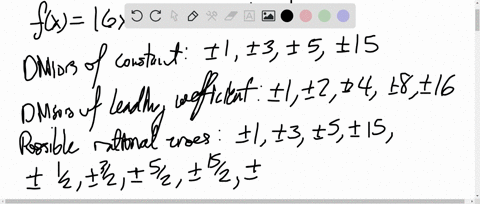 f(x) = 16
Divisors of constant: ±1, ±3, ±5, ±15
Divisors of leading coefficient: ±1, ±2, ±4, ±8, ±16
Possible rational zeroes: ±1, ±3, ±5, ±15,
± 1/2, ±3/2, ± 5/2, ± 15/2, ±